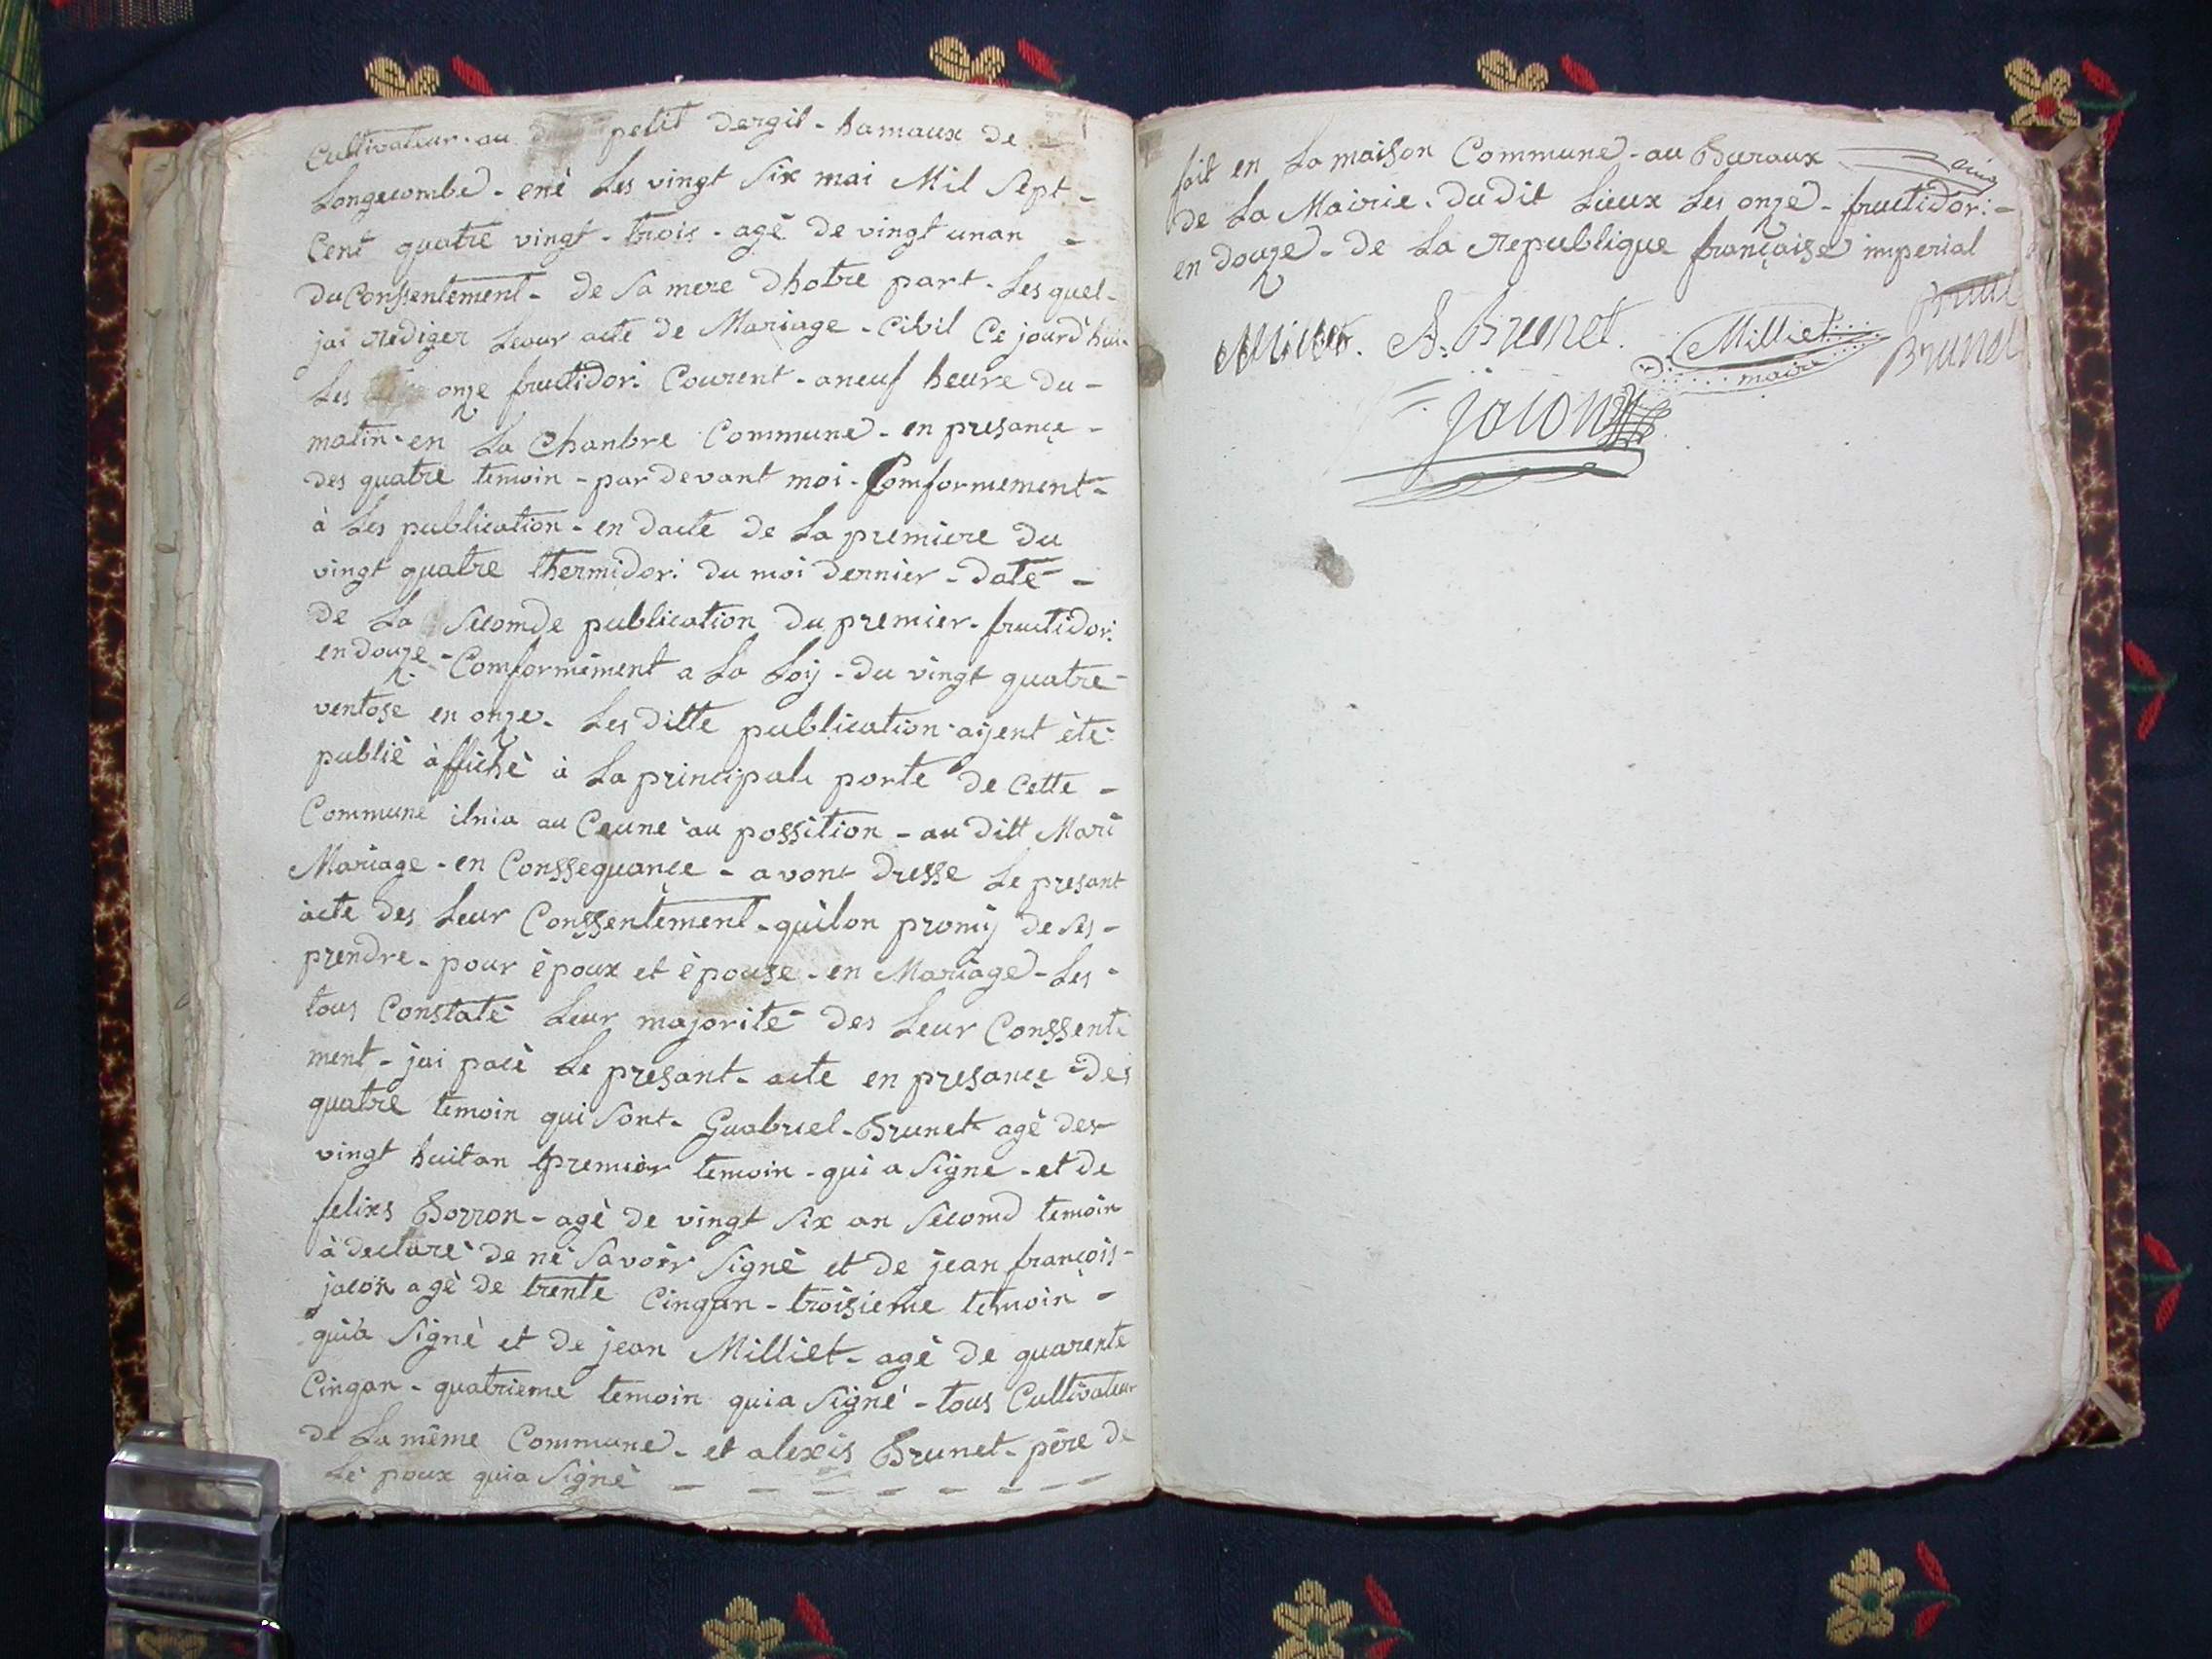 Cultivateur - au petit dergil - hamaux de
Longecombe - enè Les vingt Six mai Mil Sept -
Cent quatre vingt - trois - agè de vingt unan -
du Conssentement - de Sa mere dhotre part - Les quel -
jai rediger Leour acte de Mariage - Civil Ce jourdhui
Les onze fructidor: Courent - aneuf heure du -
matin - en La Chanbre Commune - en presançe -
des quatre temoin - par devant moi - Comformement -
à Les publication - en dacte de La premiere du
vingt quatre thermidor: du moi dernier - date -
de La Secomde publication du premier - fructidor:
en douze - Comformèment a La Loij - du vingt quatre -
ventose en onze - Les ditte publication - aijent ètè -
publiè àffichè à La principale porte de Cette -
Commune ilnia au Ceune au possition - au ditt Mari
Mariage - en Conssequançe - avont dresse Le presant
àcte des Leur Conssentement - quilon promij de Ses -
prendre - pour èpoux et èpouse - en Mariage - Les -
tous Constatè Leur majoritè des Leur Conssenti
ment - jai pacè Le presant - acte en presançe des
quatre temoin qui Sont - Guabriel - Brunet agè der
vingt huitan premier temoin - qui a Signe - et de
felixs Borron - agè de vingt Six an Secomd temoin
à declarè de nè Savoir Signè et de jean françois -
jacon agè de trente Cinqan - troisieme temoin -
quia Signè et de jean Milliet - agè de quarente
Cinqan - quatrieme temoin quia Signè - tous Cultivateur
de La même Commune - et alexis Brunet - père de
Lè poux quia Signè - - - - - - - -
fait en La maison Commune - au Buraux
de La Mairie - du dit Lieux Les onze - fructidor: -
en douze - de La republique françaisse imperial
A. Brunet. Milliet Brunet
D. maire
jacon